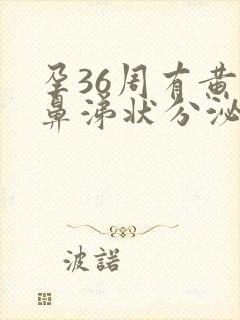 孕36周有黄
鼻涕状分泌
波諾